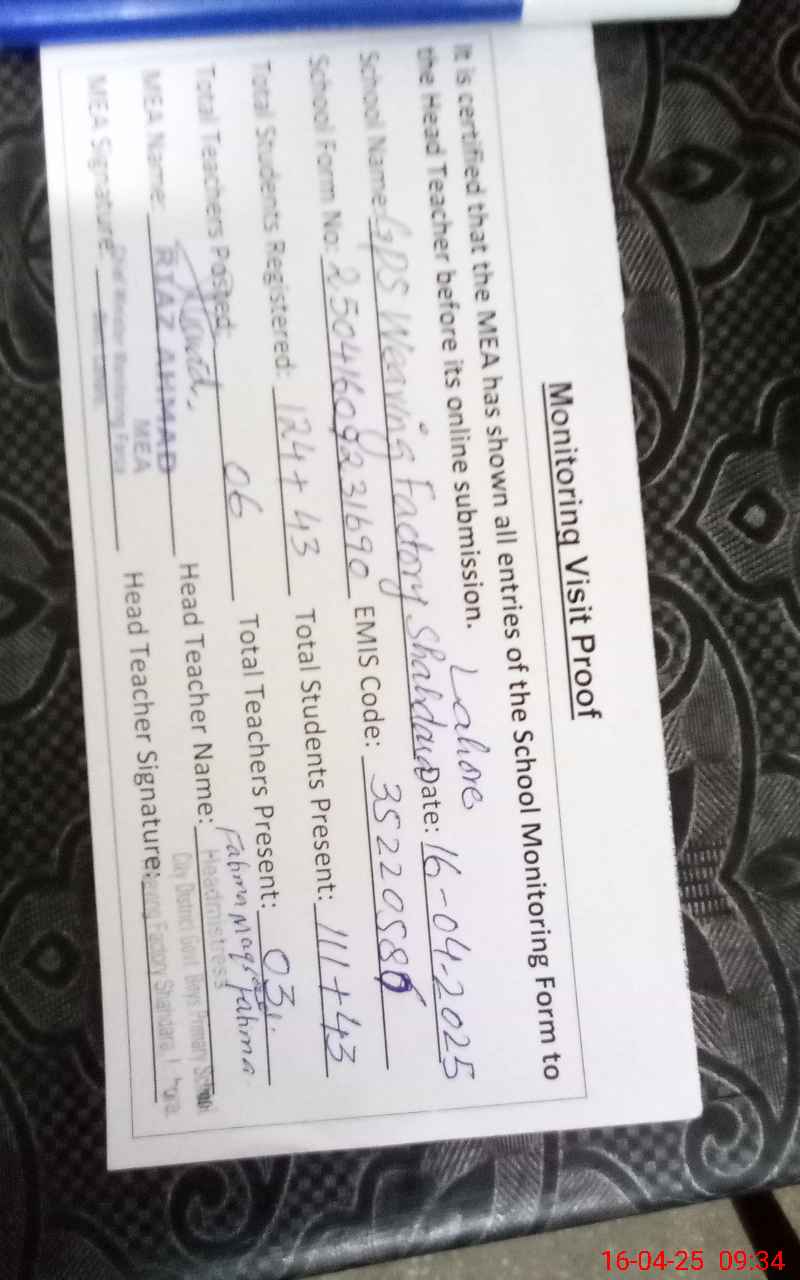 Monitoring Visit Proof
It is certified that the MEA has shown all entries of the School Monitoring Form to
the Head Teacher before its online submission.
Lahore
School Name: GPS Weaving Factory Shahdara Date: 16-04-2025
School Form No: 250416092231690 EMIS Code: 35220586
Total Students Registered: 124+43 Total Students Present: 111+43
Total Teachers Posted: 06 Total Teachers Present: 03
MEA Name: RIAZ AHMAD Head Teacher Name: Fahma
MEA
Headmistress
City District Govt. Boys Primary School
MEA Signature: Head Teacher Signature: Fahma
Weaving Factory Shahdara Lahore
16-04-25 09:34